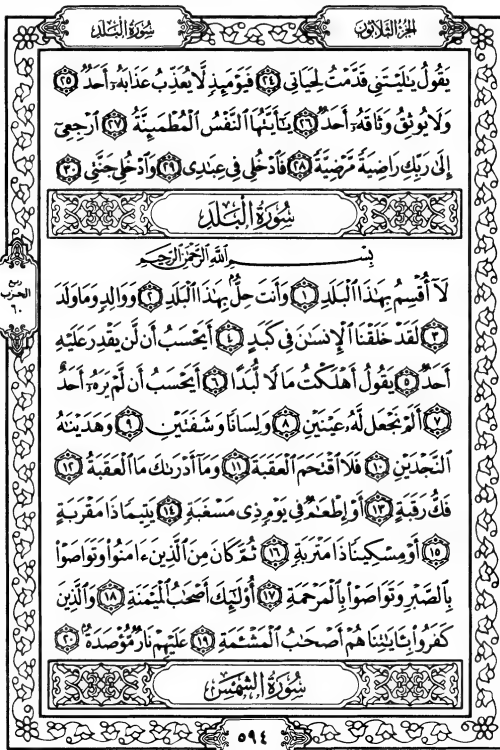 سُورَةُ البَلَدِ
الجُزْءُ الثَّلَاثُونَ
يَقُولُ يَٰلَيْتَنِى قَدَّمْتُ لِحَيَاتِى ٢٤ فَيَوْمَئِذٍ لَّا يُعَذِّبُ عَذَابَهُۥٓ أَحَدٌ ٢٥
وَلَا يُوثِقُ وَثَاقَهُۥٓ أَحَدٌ ٢٦ يَٰٓأَيَّتُهَا ٱلنَّفْسُ ٱلْمُطْمَئِنَّةُ ٢٧ ٱرْجِعِىٓ
إِلَىٰ رَبِّكِ رَاضِيَةً مَّرْضِيَّةً ٢٨ فَٱدْخُلِى فِى عِبَٰدِى ٢٩ وَٱدْخُلِى جَنَّتِى ٣٠
سُورَةُ الْبَلَدِ
بِسْمِ ٱللَّهِ ٱلرَّحْمَٰنِ ٱلرَّحِيمِ
لَآ أُقْسِمُ بِهَٰذَا ٱلْبَلَدِ ١ وَأَنتَ حِلٌّۢ بِهَٰذَا ٱلْبَلَدِ ٢ وَوَالِدٍ وَمَا وَلَدَ
٣ لَقَدْ خَلَقْنَا ٱلْإِنسَٰنَ فِى كَبَدٍ ٤ أَيَحْسَبُ أَن لَّن يَقْدِرَ عَلَيْهِ
أَحَدٌ ٥ يَقُولُ أَهْلَكْتُ مَالًا لُّبَدًا ٦ أَيَحْسَبُ أَن لَّمْ يَرَهُۥٓ أَحَدٌ
٧ أَلَمْ نَجْعَل لَّهُۥ عَيْنَيْنِ ٨ وَلِسَانًا وَشَفَتَيْنِ ٩ وَهَدَيْنَٰهُ
ٱلنَّجْدَيْنِ ١٠ فَلَا ٱقْتَحَمَ ٱلْعَقَبَةَ ١١ وَمَآ أَدْرَىٰكَ مَا ٱلْعَقَبَةُ ١٢
فَكُّ رَقَبَةٍ ١٣ أَوْ إِطْعَٰمٌ فِى يَوْمٍ ذِى مَسْغَبَةٍ ١٤ يَتِيمًا ذَا مَقْرَبَةٍ
١٥ أَوْ مِسْكِينًا ذَا مَتْرَبَةٍ ١٦ ثُمَّ كَانَ مِنَ ٱلَّذِينَ ءَامَنُوا۟ وَتَوَاصَوْا۟
بِٱلصَّبْرِ وَتَوَاصَوْا۟ بِٱلْمَرْحَمَةِ ١٧ أُو۟لَٰٓئِكَ أَصْحَٰبُ ٱلْمَيْمَنَةِ ١٨ وَٱلَّذِينَ
كَفَرُوا۟ بِـَٔايَٰتِنَا هُمْ أَصْحَٰبُ ٱلْمَشْـَٔمَةِ ١٩ عَلَيْهِمْ نَارٌ مُّؤْصَدَةٌۢ ٢٠
سُورَةُ الشَّمْسِ
ربع
الحزب
٦٠
٥٩٤